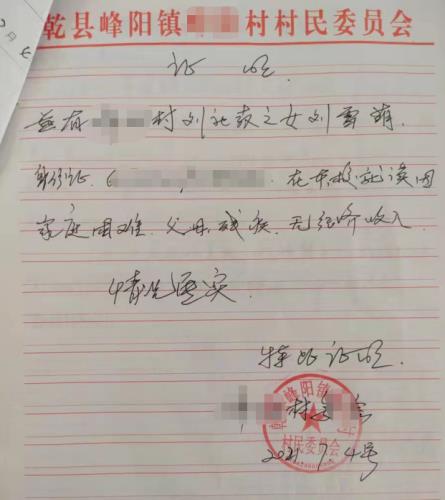 乾县峰阳镇村村民委员会
证明
兹有村刘社教之女刘雪萌.
身份证.在本校就读因
家庭困难.父母残疾.无经济收入.
情况属实.
特此证明.
村委会
2021.7.4号
乾县峰阳镇
村民委员会
月